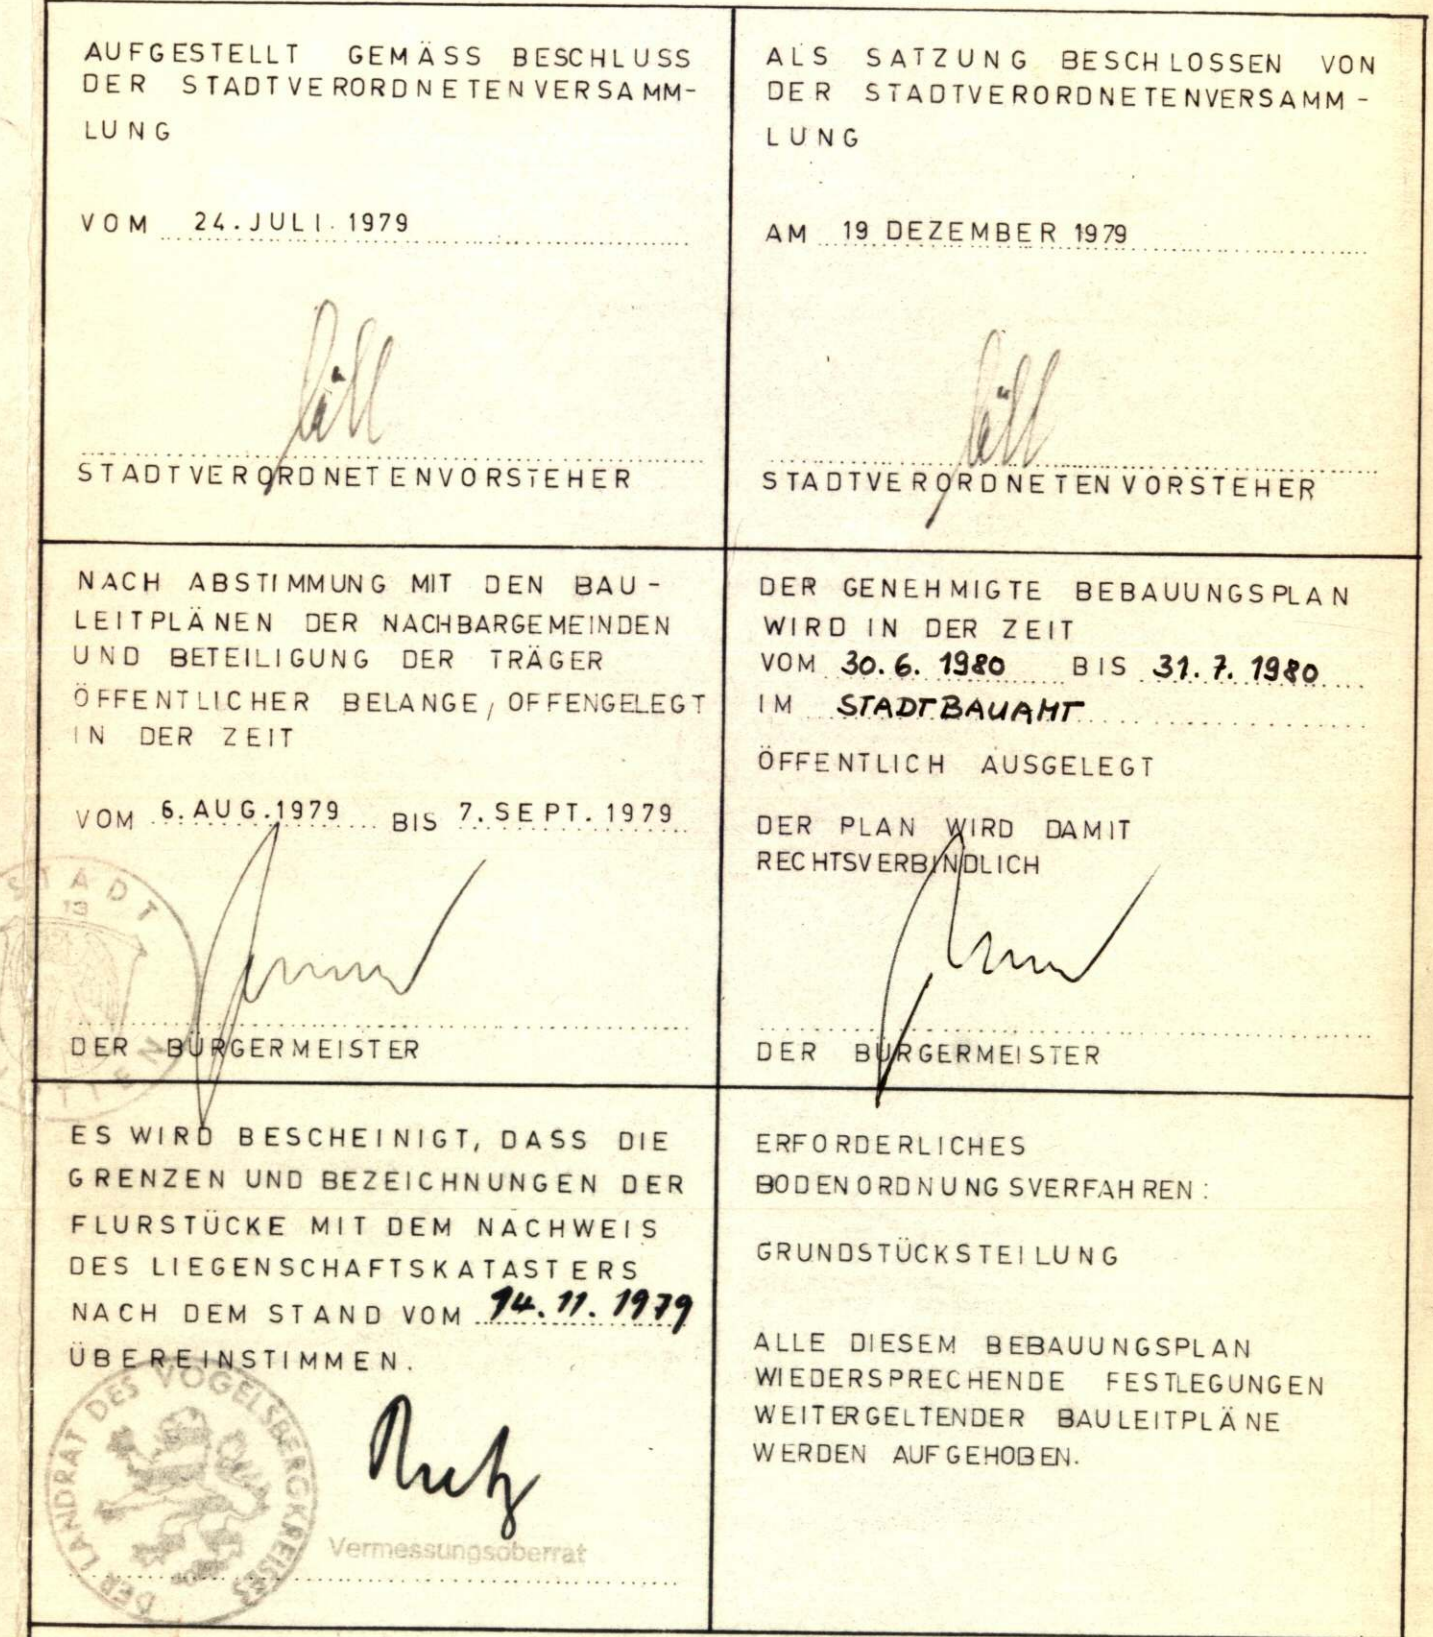 AUFGESTELLT GEMÄSS BESCHLUSS
DER STADTVERORDNETENVERSAMM-
LUNG
VOM 24. JULI. 1979
STADTVERORDNETENVORSTEHER
ALS SATZUNG BESCHLOSSEN VON
DER STADTVERORDNETENVERSAMM-
LUNG
AM 19 DEZEMBER 1979
STADTVERORDNETENVORSTEHER
NACH ABSTIMMUNG MIT DEN BAU-
LEITPLÄNEN DER NACHBARGEMEINDEN
UND BETEILIGUNG DER TRÄGER
ÖFFENTLICHER BELANGE, OFFENGELEGT
IN DER ZEIT
VOM 6. AUG. 1979 BIS 7. SEPT. 1979
STADT
13
DER BÜRGERMEISTER
DER GENEHMIGTE BEBAUUNGSPLAN
WIRD IN DER ZEIT
VOM 30.6.1980 BIS 31.7.1980
IM STADTBAUAMT
ÖFFENTLICH AUSGELEGT
DER PLAN WIRD DAMIT
RECHTSVERBINDLICH
DER BÜRGERMEISTER
ES WIRD BESCHEINIGT, DASS DIE
GRENZEN UND BEZEICHNUNGEN DER
FLURSTÜCKE MIT DEM NACHWEIS
DES LIEGENSCHAFTSKATASTERS
NACH DEM STAND VOM 14.11.1979
ÜBEREINSTIMMEN.
DER LANDRAT DES VOGELSBERGKREISES
Vermessungsoberrat
ERFORDERLICHES
BODENORDNUNGSVERFAHREN:
GRUNDSTÜCKSTEILUNG
ALLE DIESEM BEBAUUNGSPLAN
WIEDERSPRECHENDE FESTLEGUNGEN
WEITERGELTENDER BAULEITPLÄNE
WERDEN AUFGEHOBEN.